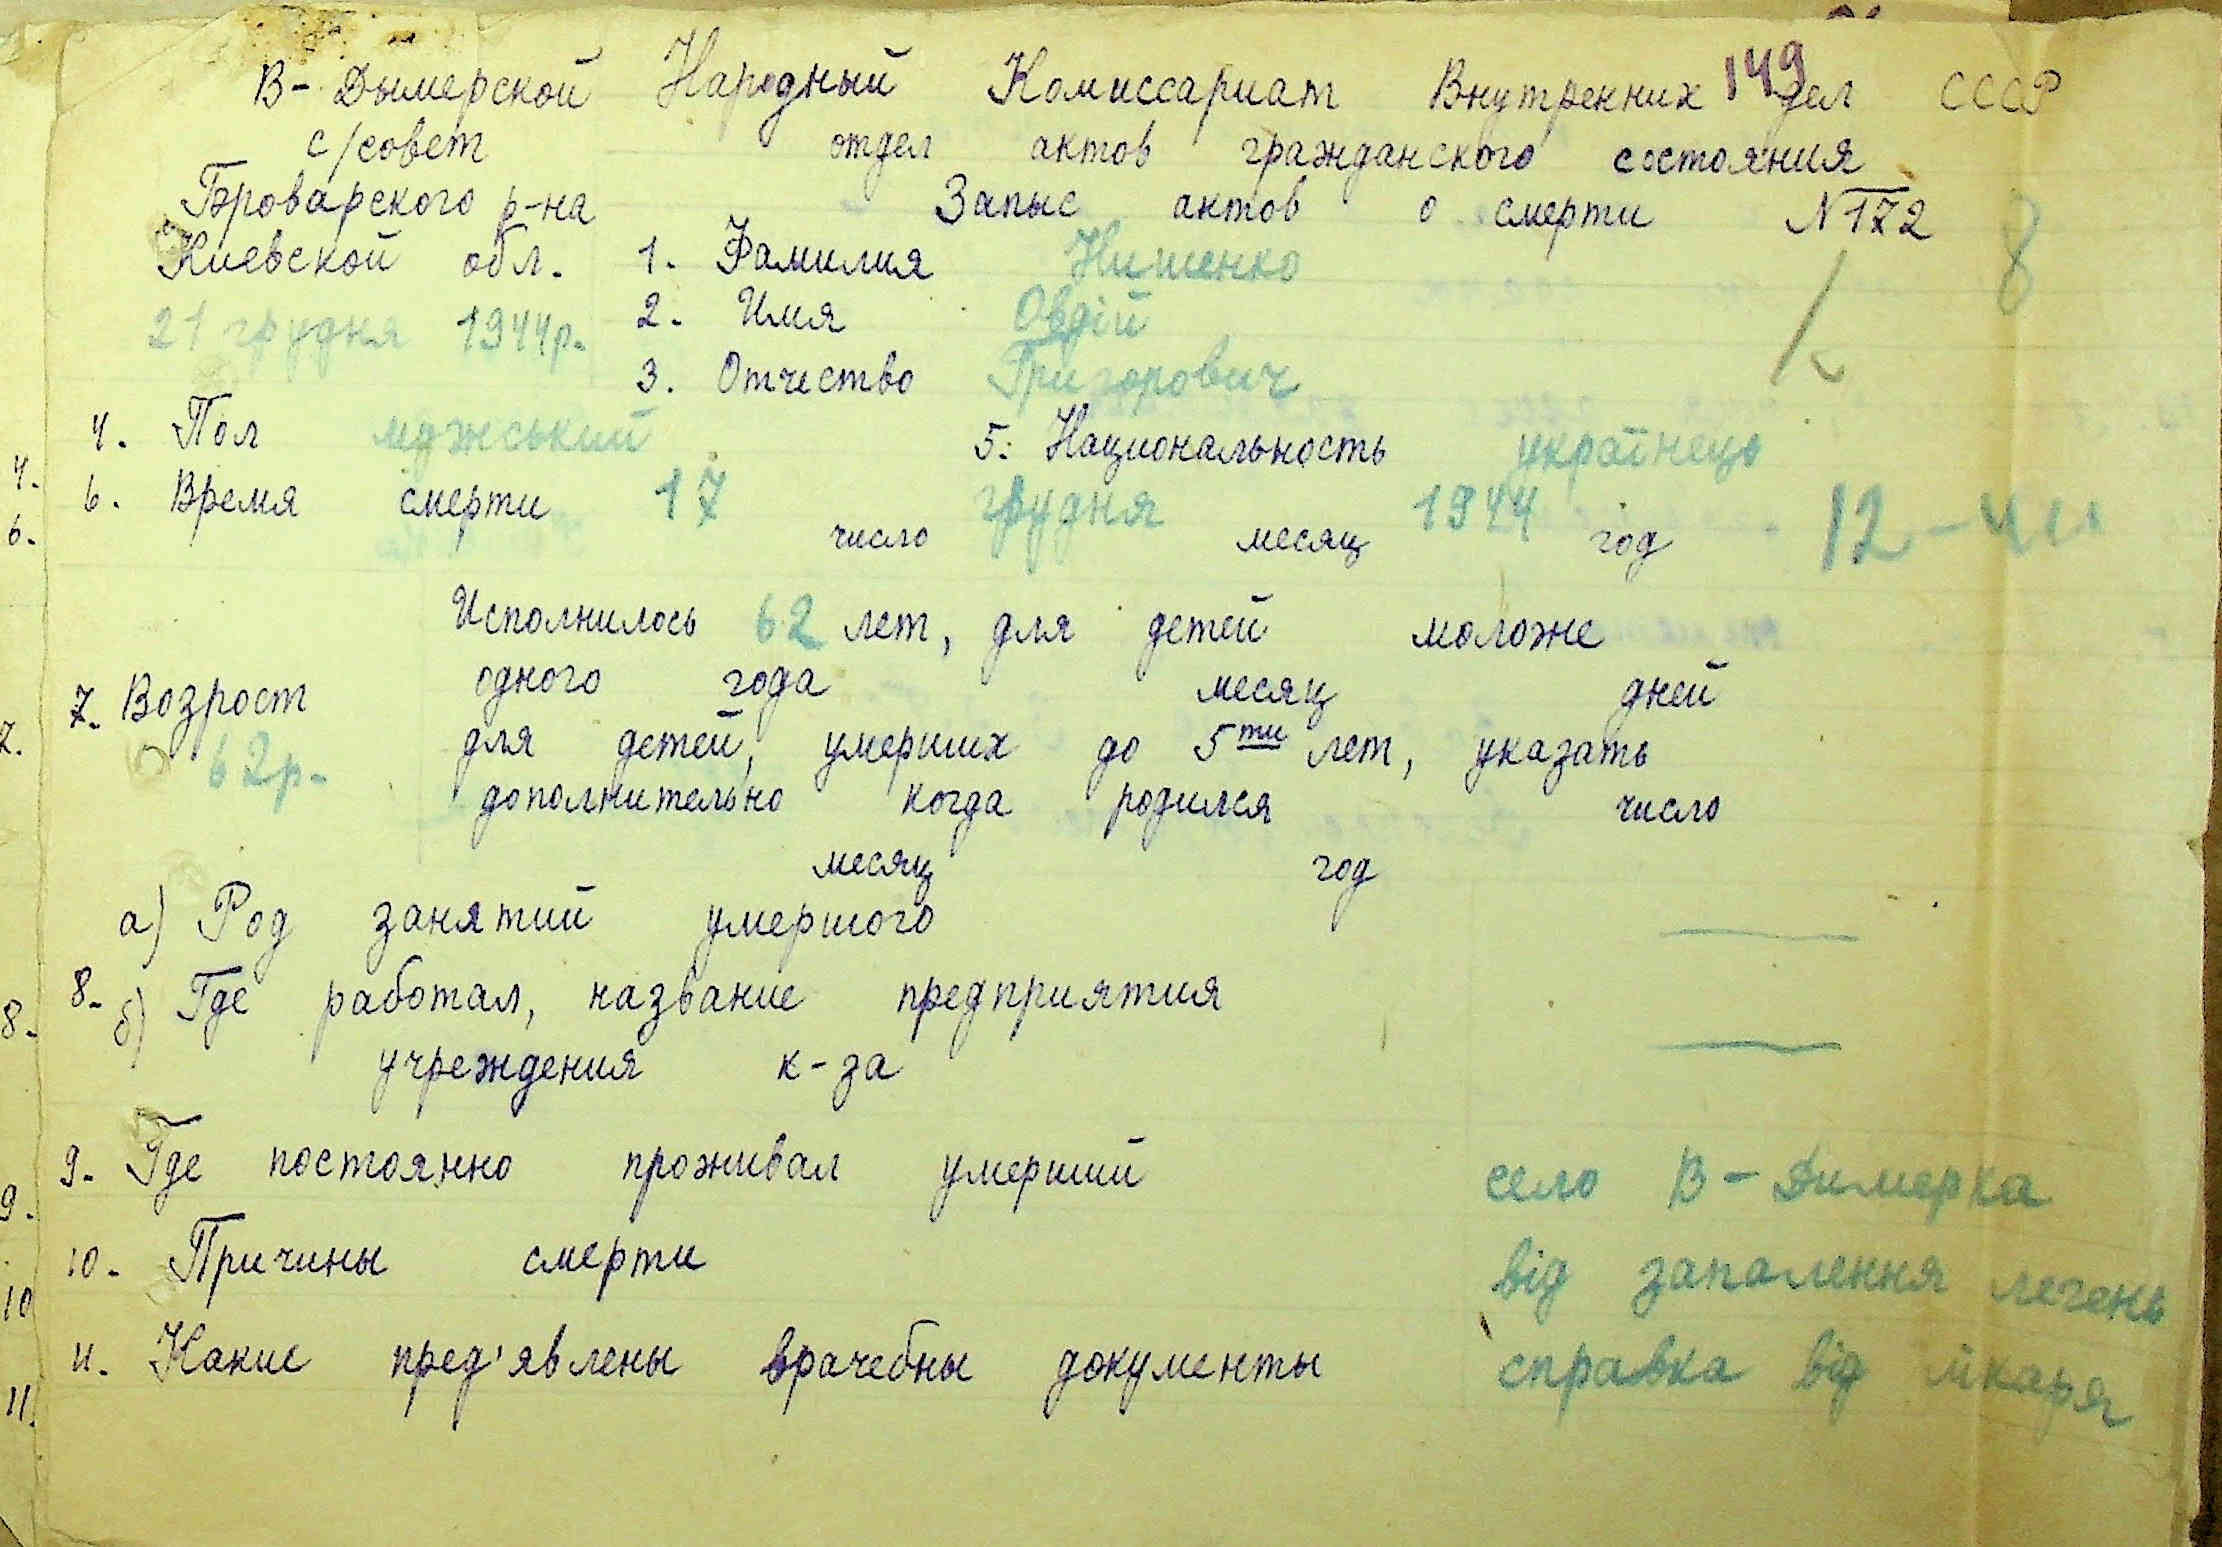 149
В- Дымерской Народный Комиссариат Внутренних дел СССР
с/совет отдел актов гражданского состояния
Броварского р-на Запыс актов о смерти № 172
8
Киевской обл. 1. Фамилия Нишенко
21 грудня 1944р. 2. Имя Овдій
3. Отчество Григорович
4. Пол мджський 5: Национальность українець
4.
6. Время смерти 17 грудня 1944 12-
6. число месяц год
Исполнилось 62 лет, для детей моложе
одного года месяц дней
7. Возрост
7. 62р. для детей, умерших до 5ти лет, указать
дополнительно когда родился число
месяц год
а) Род занятий умершого —
8. б) Где работал, название предприятия
8. учреждения к-за —
9. Где постоянно проживал умерший село В-Димерка
9.
10. Причины смерти від запалення легень
10
11. Какие пред'явлены врачебны документы справка від лікаря
11.